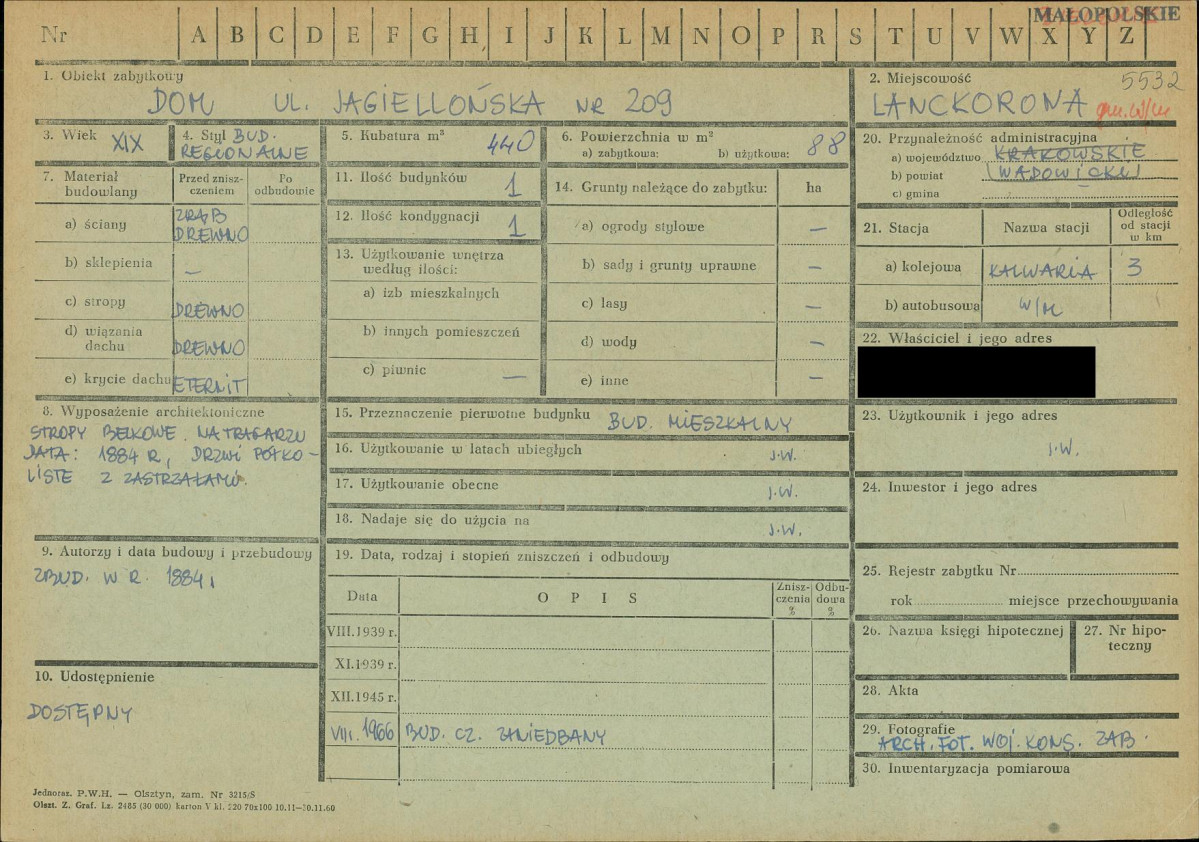 MAŁOPOLSKIE
Nr A B C D E F G H I J K L M N O P R S T U V W X Y Z
1. Obiekt zabytkowy
DOM UL. JAGIELLOŃSKA NR 209
2. Miejscowość 5532
LANCKORONA gm. w/m
3. Wiek XIX
4. Styl BUD.
REGIONALNE
5. Kubatura m³ 440
6. Powierzchnia w m²
a) zabytkowa: b) użytkowa: 88
7. Materiał budowlany
Przed zniszczeniem
Po odbudowie
a) ściany ZRĄB
DREWNO
b) sklepienia —
c) stropy DREWNO
d) wiązania
dachu DREWNO
e) krycie dachu ETERNIT
8. Wyposażenie architektoniczne
STROPY BELKOWE. NA TRAGARZU
DATA: 1884 R, DRZWI PÓŁKO-
LISTE Z ZASTRZAŁAMI.
9. Autorzy i data budowy i przebudowy
ZBUD. W R. 1884.
10. Udostępnienie
DOSTĘPNY
11. Ilość budynków 1
12. Ilość kondygnacji 1
13. Użytkowanie wnętrza
według ilości:
a) izb mieszkalnych
b) innych pomieszczeń
c) piwnic —
14. Grunty należące do zabytku: ha
a) ogrody stylowe —
b) sady i grunty uprawne —
c) lasy —
d) wody —
e) inne —
15. Przeznaczenie pierwotne budynku BUD. MIESZKALNY
16. Użytkowanie w latach ubiegłych J.W.
17. Użytkowanie obecne J.W.
18. Nadaje się do użycia na J.W.
19. Data, rodzaj i stopień zniszczeń i odbudowy
Data O P I S Zniszczenia % Odbudowa %
VIII.1939 r.
XI.1939 r.
XII.1945 r.
VIII.1966 BUD. CZ. ZANIEDBANY
20. Przynależność administracyjna
a) województwo KRAKOWSKIE
b) powiat (WADOWICKI)
c) gmina
21. Stacja Nazwa stacji Odległość
od stacji
w km
a) kolejowa KALWARIA 3
b) autobusowa W/M
22. Właściciel i jego adres
23. Użytkownik i jego adres
J.W.
24. Inwestor i jego adres
25. Rejestr zabytku Nr
rok miejsce przechowywania
26. Nazwa księgi hipotecznej
27. Nr hipo-
teczny
28. Akta
29. Fotografie
ARCH. FOT. WOJ. KONS. ZAB.
30. Inwentaryzacja pomiarowa
Jednoraz. P.W.H. — Olsztyn, zam. Nr 3215/S
Olszt. Z. Graf. Lz. 2485 (30 000) karton V kl. 220 70x100 10.11—30.11.60